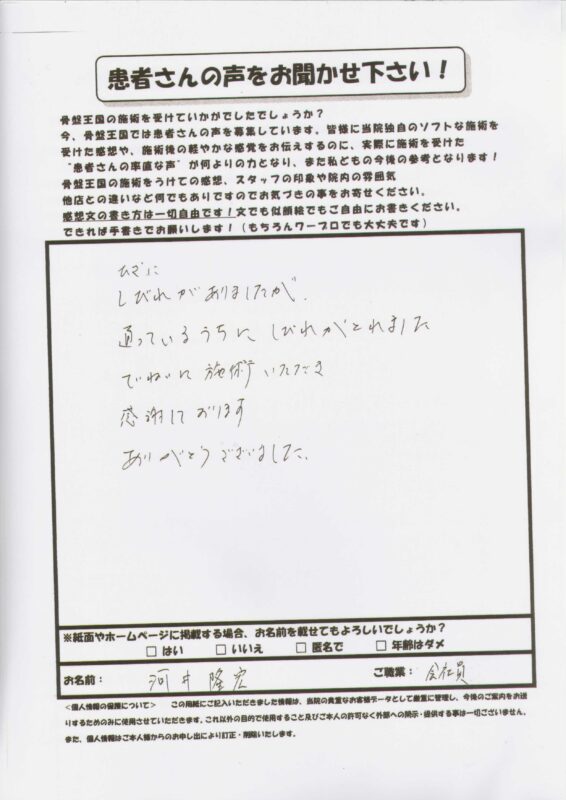 患者さんの声をお聞かせ下さい！
骨盤王国の施術を受けていかがでしたでしょうか？
今、骨盤王国では患者さんの声を募集しています。皆様に当院独自のソフトな施術を
受けた感想や、施術後の軽やかな感覚をお伝えするのに、実際に施術を受けた
"患者さんの率直な声"が何よりの力となり、また私どもの今後の参考となります！
骨盤王国の施術をうけての感想、スタッフの印象や院内の雰囲気
他店との違いなど何でもありですのでお気づきの事をお寄せください。
感想文の書き方は一切自由です！文でも似顔絵でもご自由にお書きください。
できれば手書きでお願いします！（もちろんワープロでも大丈夫です）
ひざに
しびれがありましたが、
通っているうちに しびれがとれました
ていねいに 施術 いただき
感謝しております
ありがとうございました。
※紙面やホームページに掲載する場合、お名前を載せてもよろしいでしょうか？
□ はい □ いいえ □ 匿名で □ 年齢はダメ
お名前： 河井 隆宏 ご職業： 会社員
＜個人情報の保護について＞ この用紙にご記入いただきました情報は、当院の貴重なお客様データとして厳重に管理し、今後のご案内をお送
りするためのみに使用させていただきます。これ以外の目的で使用すること及びご本人の許可なく外部への開示・提供する事は一切ございません。
また、個人情報はご本人様からのお申し出により訂正・削除いたします。